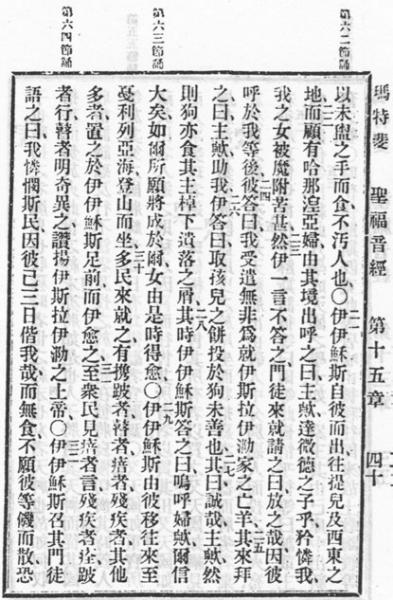 瑪特斐 聖福音經 第十五章 四十
第六二節誦
以未盥之手而食不汚人也○二一伊伊穌斯自彼而出往提兒及西東之
地二二而顧有哈那湼亞婦由其境出呼之曰主歟達微德之子乎矜憐我
我之女被魔附苦甚二三然伊一言不答之門徒來就請之曰放之哉因彼
呼於我等後二四彼答曰我受遣無非爲就伊斯拉伊泐家之亡羊二五其來拜
之曰主歟助我二六伊答曰取孩兒之餅投於狗未善也二七其曰誠哉主歟然
則狗亦食其主棹下遺落之屑二八其時伊伊穌斯答之曰嗚呼婦歟爾信
第六三節誦
大矣如爾所願將成於爾女由是時得愈○二九伊伊穌斯由彼移往來至
戞利列亞海登山而坐三十多民來就之有携跛者瞽者瘖者殘疾者其他
多者置之於伊伊穌斯足前而伊愈之三一至衆民見瘖者言殘疾者痊跛
第六四節誦
者行瞽者明奇異之讚揚伊斯拉伊泐之上帝○三二伊伊穌斯召其門徒
語之曰我憐憫斯民因彼已三日偕我哉而無食不願彼等饑而散恐